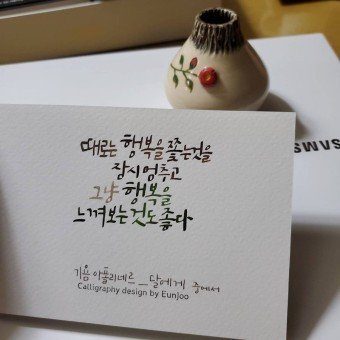 때로는 행복을 쫓는것을
잠시 멈추고
그냥 행복을
느껴보는것도 좋다
기욤 아폴리네르 _ 달에게 중에서
Calligraphy design by EunJoo
SAMSU